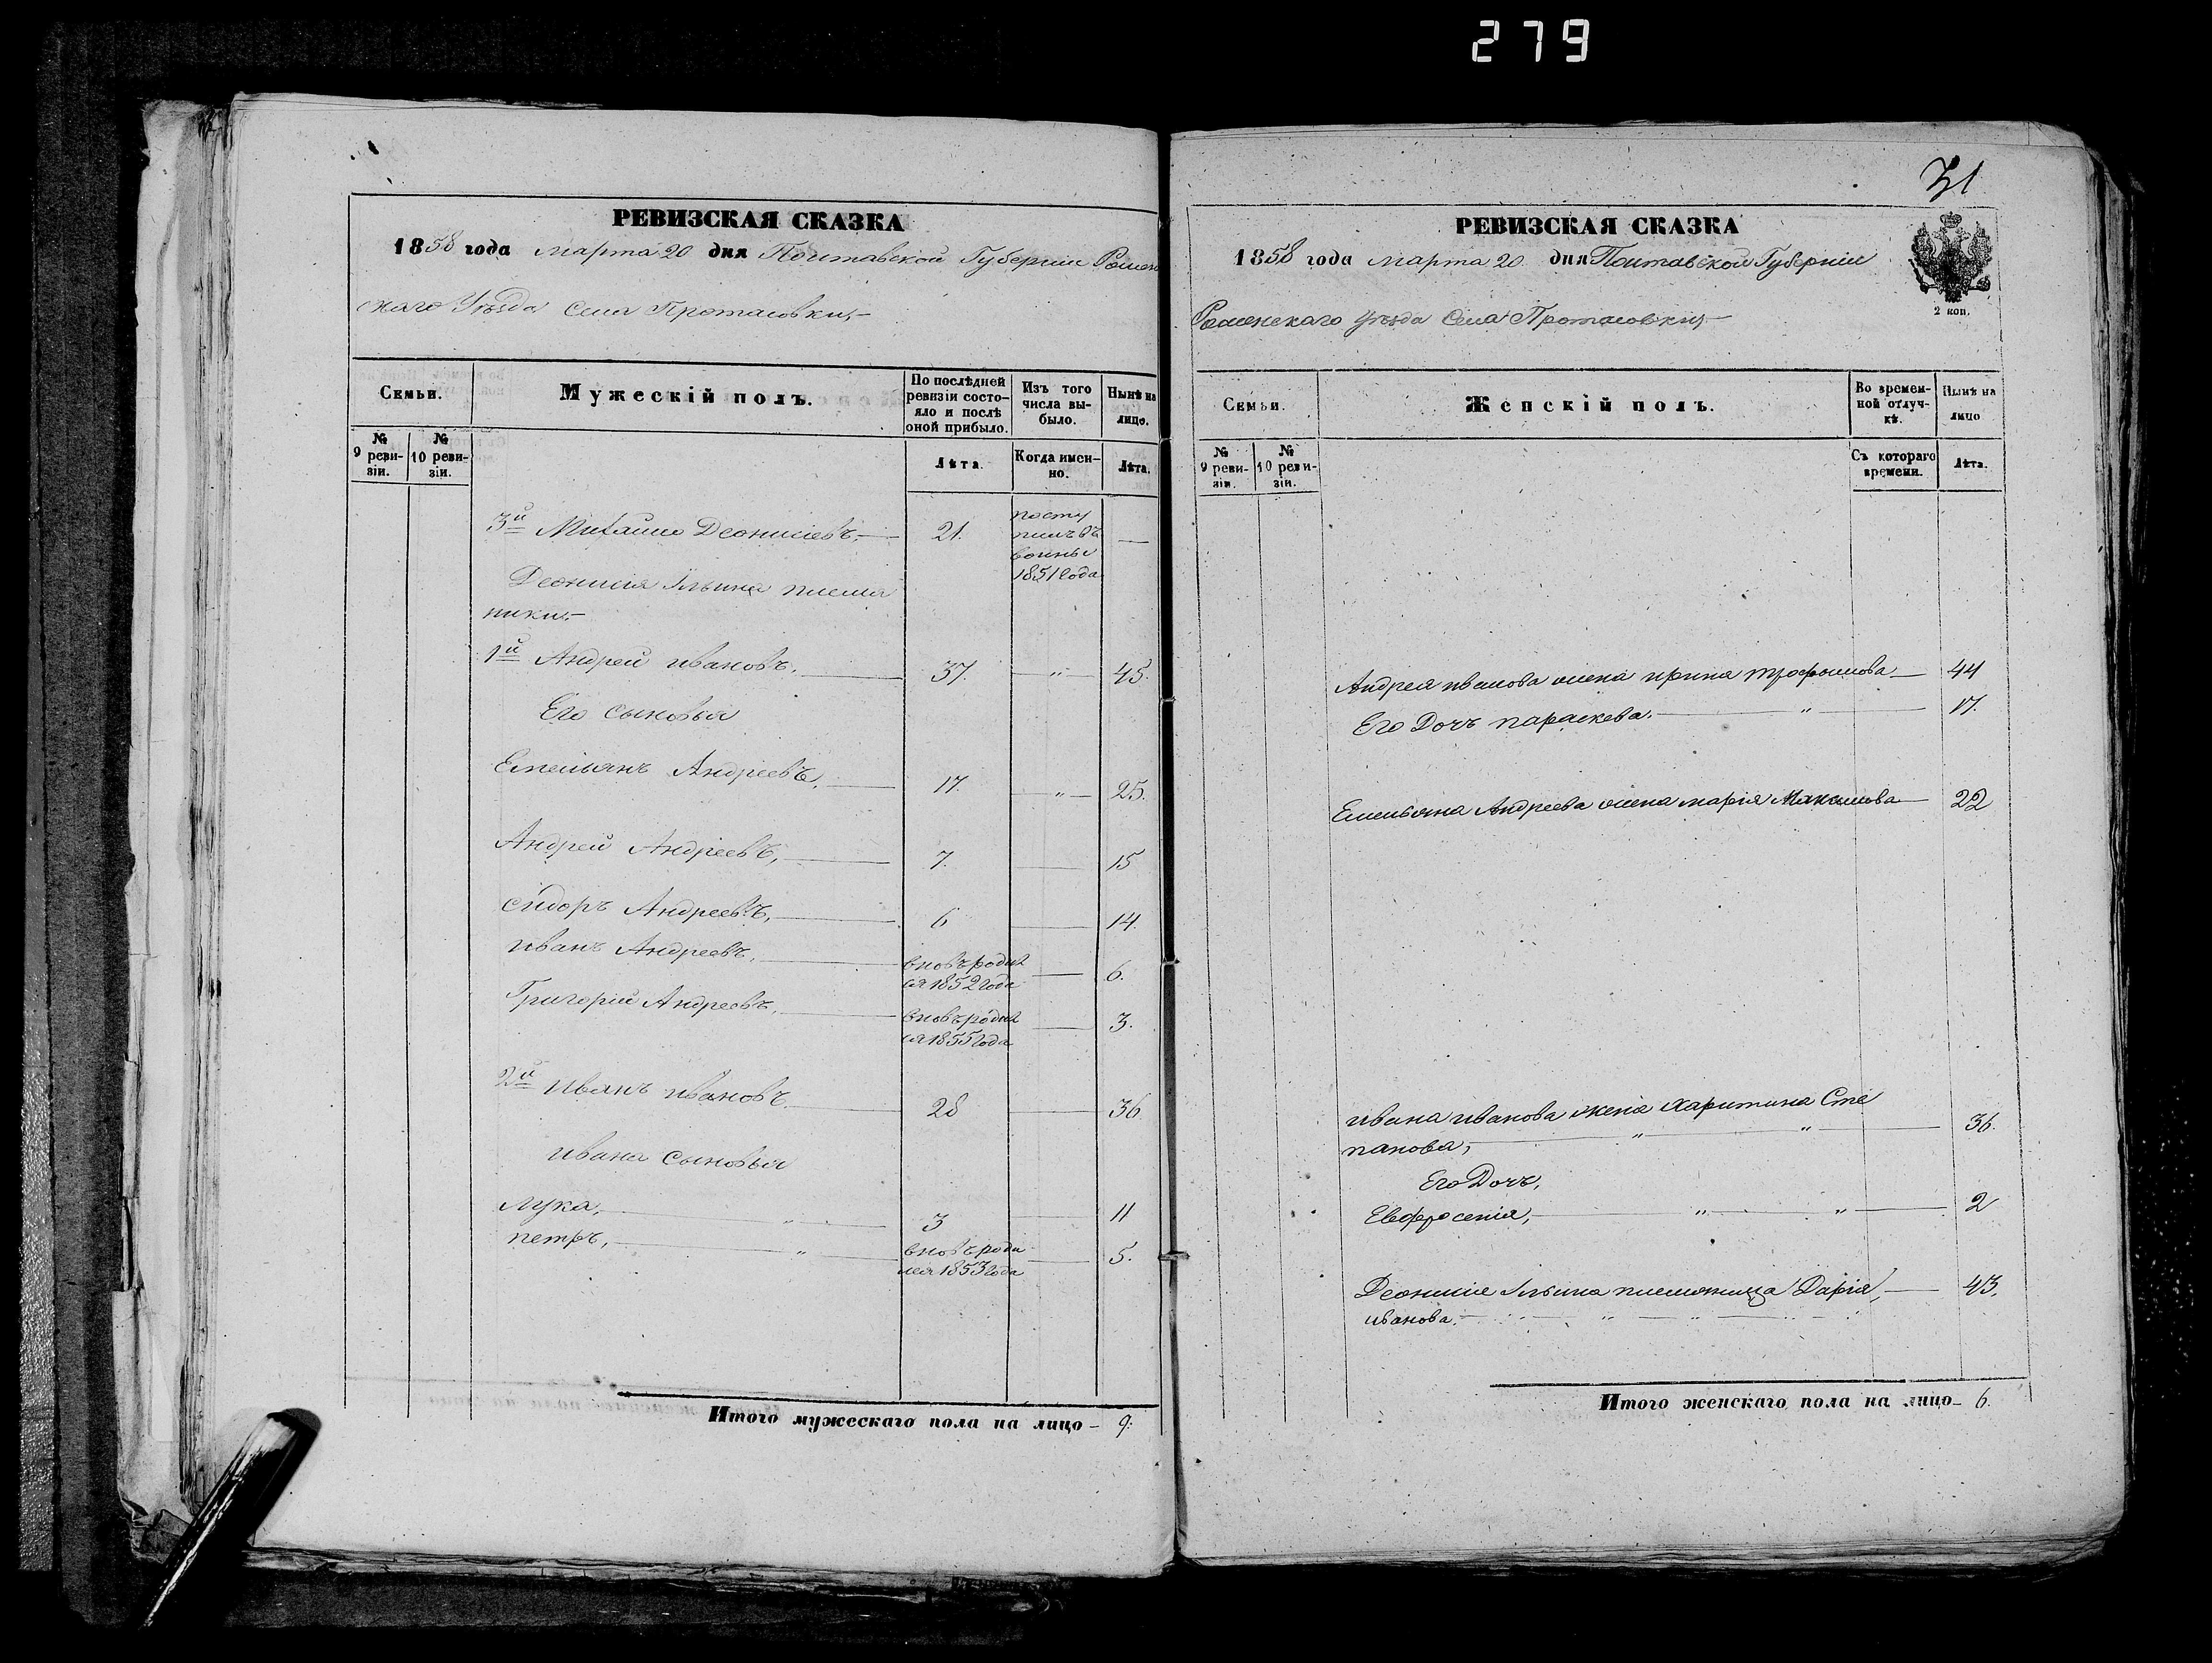 279
РЕВИЗСКАЯ СКАЗКА
1858 года марта 20 дня Полтавской Губерніи Ромен
скаго Уѣзда Села Протасовки,
Семьи.
Мужескій полъ.
По послѣдней ревизіи состо-яло и послѣ оной прибыло.
Изъ того числа вы-было.
Нынѣ на лицо.
№ 9 реви-зіи.
№ 10 реви-зіи.
Лѣта.
Когда имен-но.
Лѣта.
3й Михайло Деонисіевъ, 21. посту
пилъ въ
воины
1851 года
Деонисія Ильина племя
ники
1й Андрей ивановъ, 37. " 45.
Его сыновья
Емельянъ Андреевъ, 17. " 25.
Андрей Андреевъ, 7. 15
сидоръ Андреевъ, 6 14.
иванъ Андреевъ, вновь родил
ся 1852 года 6.
Григорій Андреевъ, вновь родил
ся 1855 года 3.
2й иванъ ивановъ 28 36
ивана сыновья
лука, " 3 11
петръ, " вновь роди
лся 1853 года 5.
Итого мужескаго пола на лицо 9.
31
РЕВИЗСКАЯ СКАЗКА
1858 года марта 20 дня Полтавской Губерніи
Роменскаго уѣзда Села Протасовки,
2 коп.
Семьи.
Женскій полъ.
Во времен-ной отлуч-кѣ.
Нынѣ на лицо
№ 9 реви-зіи.
№ 10 реви-зіи.
Съ котораго времени.
Лѣта.
Андрея иванова жена ирина трофимова 44
Его Дочь параскева. " 17.
Емельяна Андреева жена марія Максимова 22
ивана иванова жена Харитина Сте
панова, " " 36.
Его Дочь,
Евфросенія, " " 2
Деонисія Ильина племяница Дарія, 43.
иванова.
Итого женскаго пола на лицо 6.